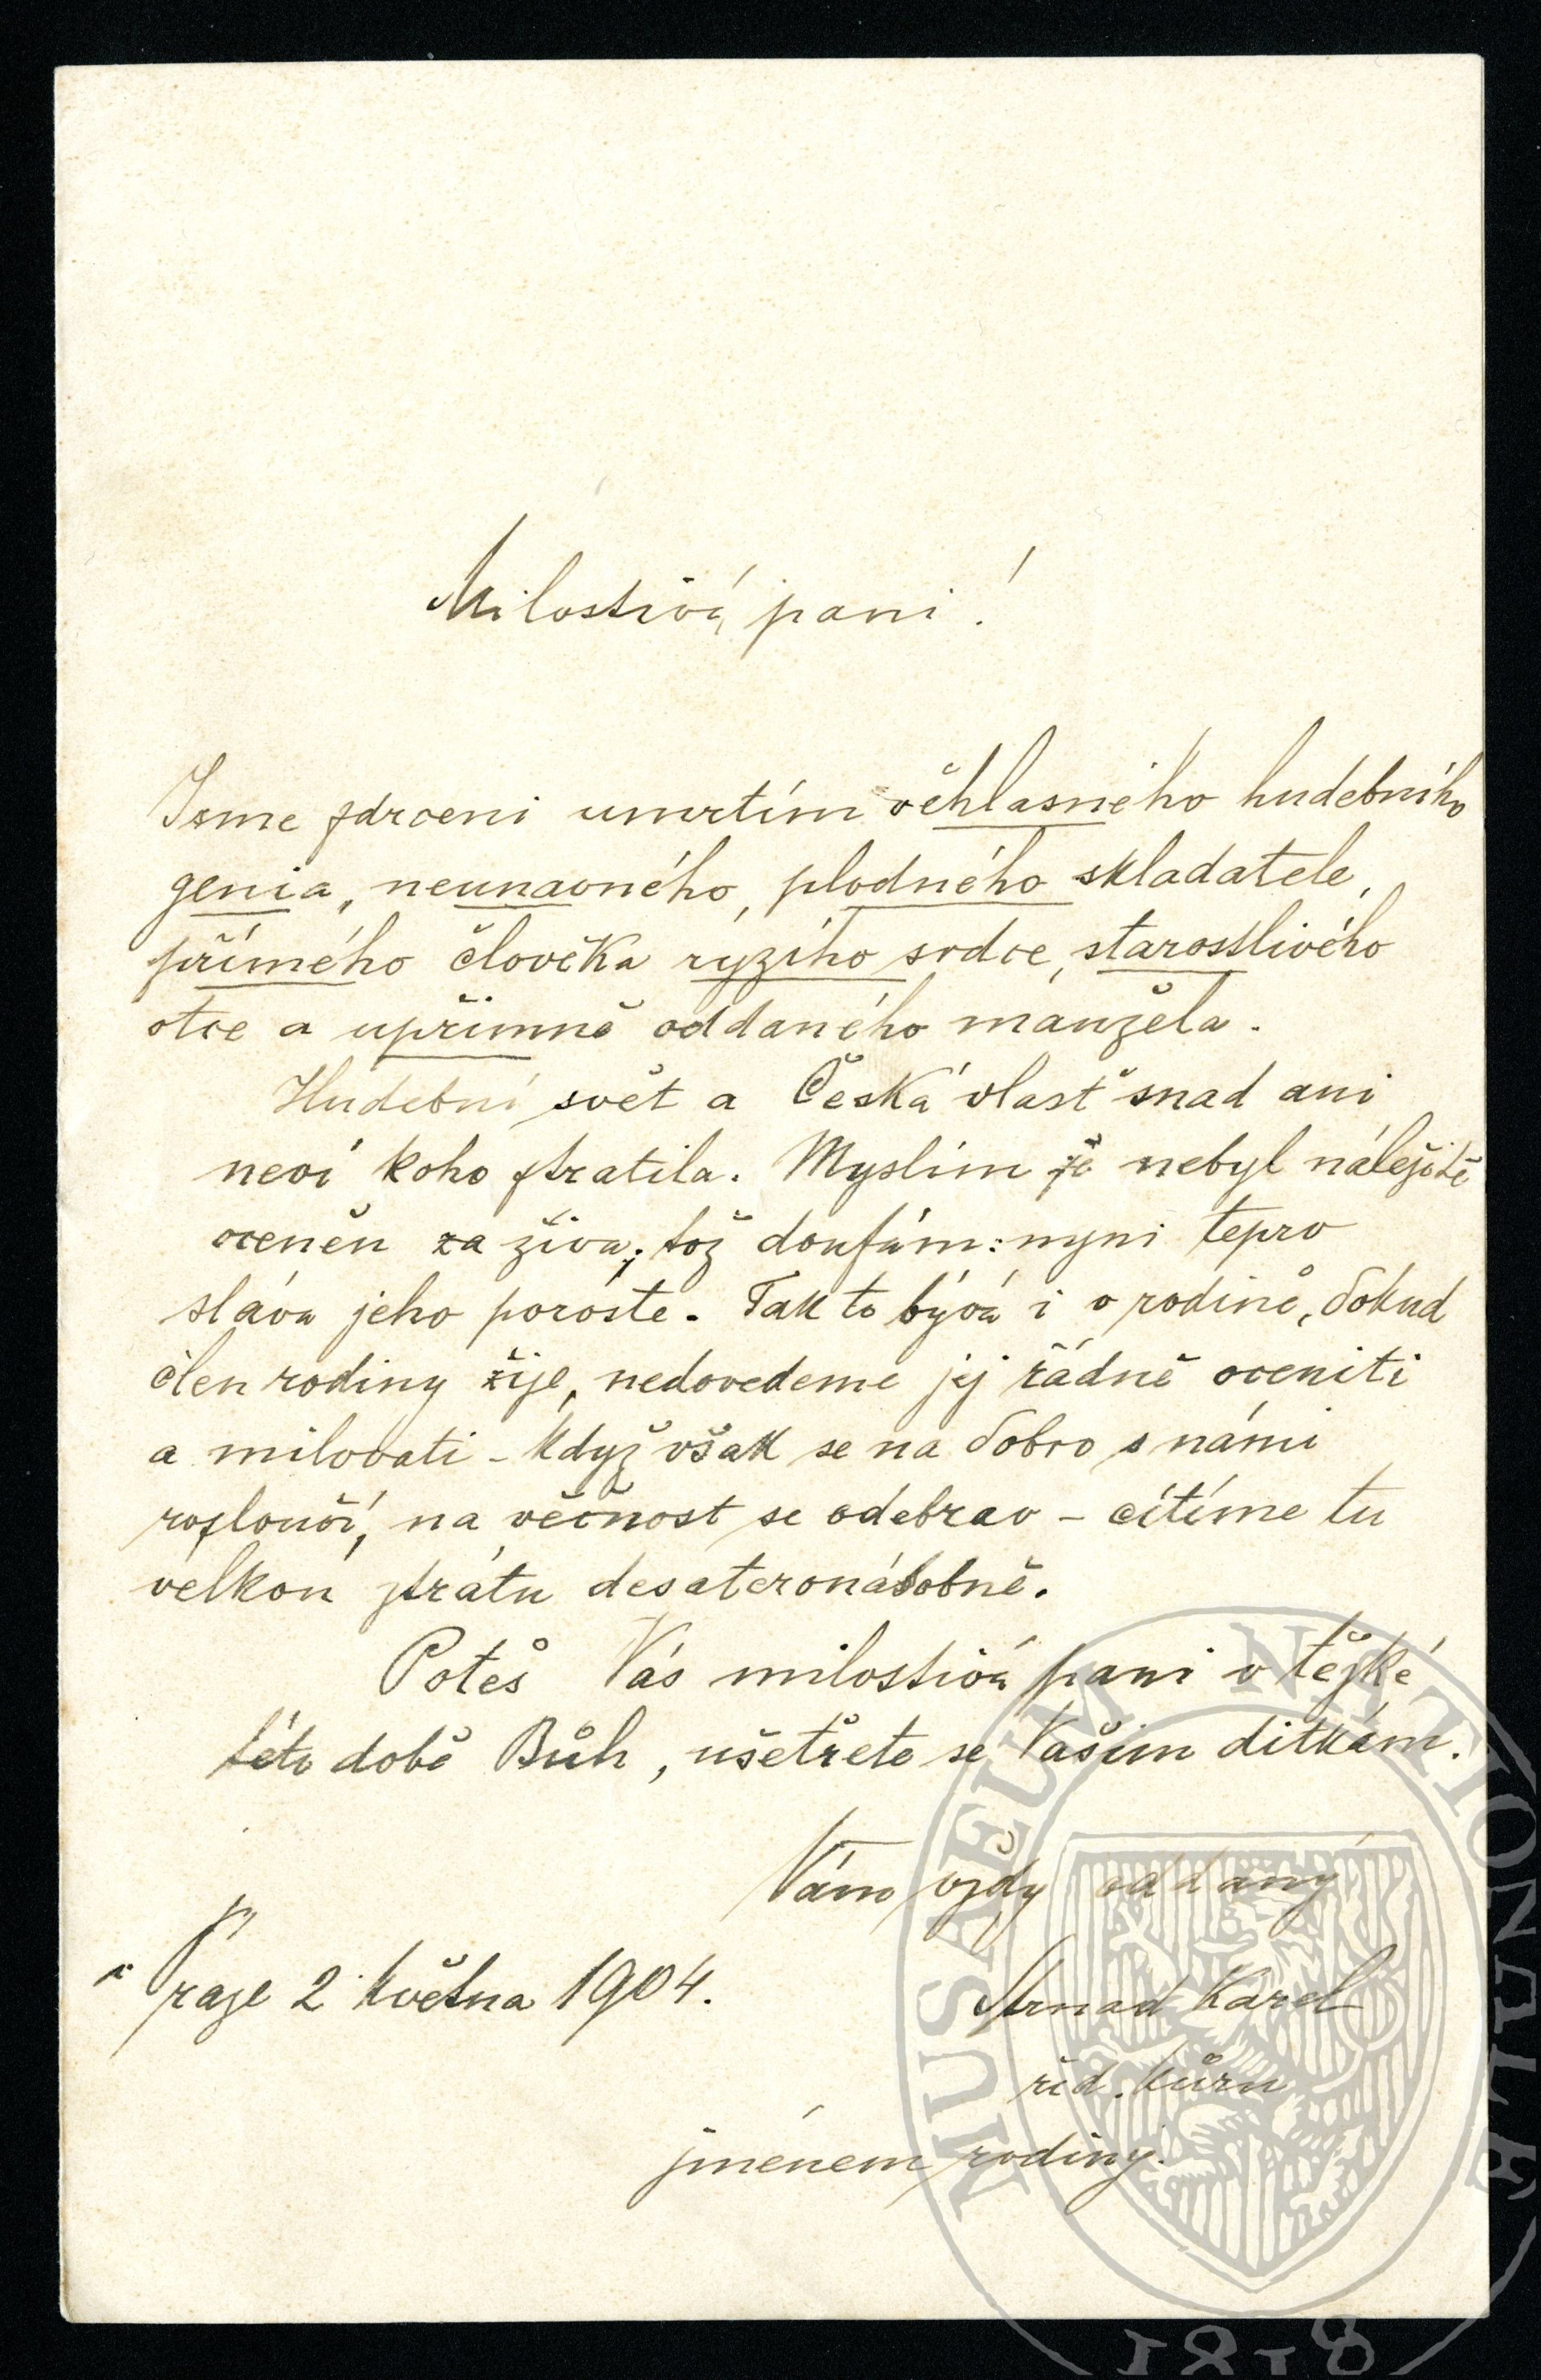 Milostivá paní!
Jsme zdrceni umrtím věhlasného hudebního
genia, neunavného, plodného skladatele,
přímého člověka ryzího srdce, starostlivého
otce a upřimně oddaného manžela.
Hudební svět a Česká vlasť snad ani
neví koho ztratila. Myslím že nebyl náležitě
oceněn za živa; tož doufám: nyni tepro
sláva jeho poroste. Tak to bývá i v rodině, dokud
člen rodiny žije, nedovedeme jej řádně oceniti
a milovati - když však se na dobro s námi
rozloučí, na věčnost se odebrav - cítíme tu
velkou ztrátu desateronásobně.
Potěš Vás milostivá paní v těžké
této době Bůh, ušetřete se Vašim dítkám.
Vám vždy oddaný
v Praze 2. května 1904.
Strnad Karel
řid. kůru
jménem rodiny.
MUSAEUM NATIONALE
1818